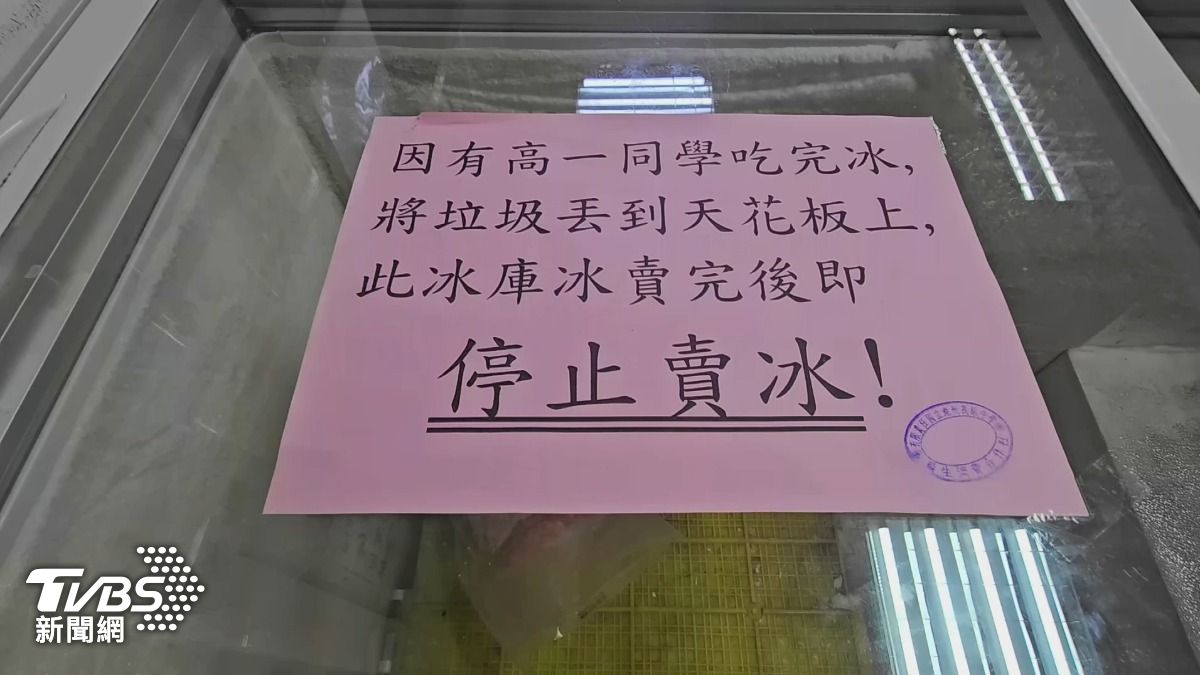 因有高一同學吃完冰,
將垃圾丟到天花板上,
此冰庫冰賣完後即
停止賣冰!
TVBS
新聞網